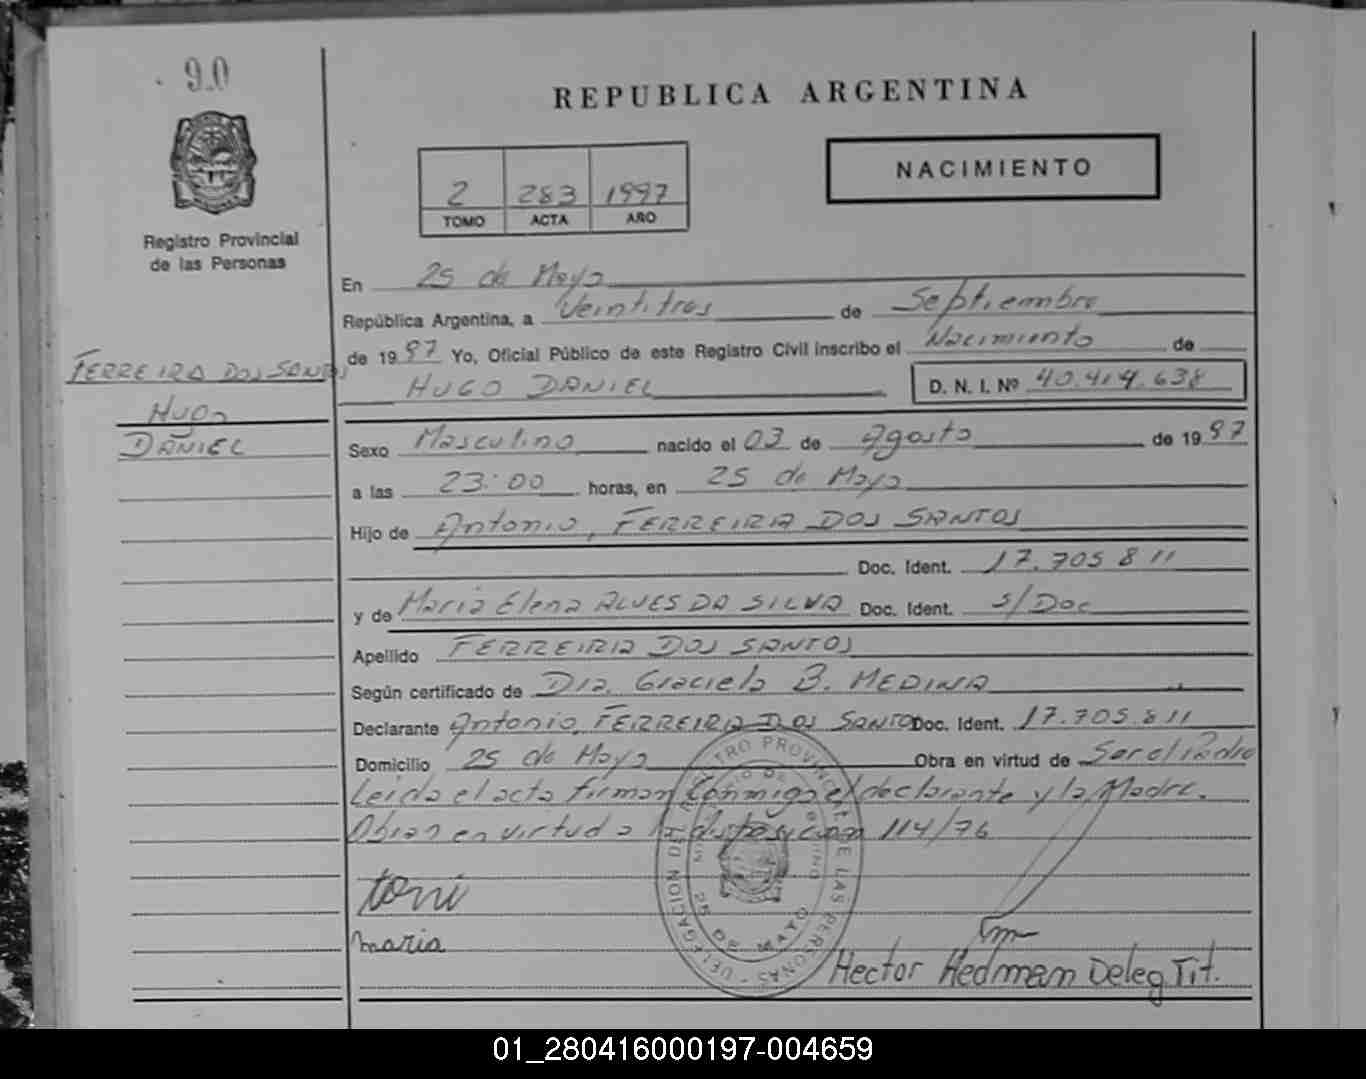 90
REPUBLICA ARGENTINA
Registro Provincial
de las Personas
2 283 1997
TOMO ACTA AÑO
NACIMIENTO
En 25 de Mayo
República Argentina, a Veintitres de Septiembre
de 1997 Yo, Oficial Público de este Registro Civil inscribo el Nacimiento de
HUGO DANIEL D. N. I. Nº 40.414.638
FERREIRA DOS SANTOS
HUGO
DANIEL
Sexo Masculino nacido el 03 de Agosto de 1997
a las 23:00 horas, en 25 de Mayo
Hijo de Antonio, FERREIRA DOS SANTOS
Doc. Ident. 17.705.811
y de Maria Elena ALVES DA SILVA Doc. Ident. s/Doc
Apellido FERREIRA DOS SANTOS
Según certificado de Dra. Graciela B. MEDINA
Declarante Antonio, FERREIRA DOS SANTOS Doc. Ident. 17.705.811
Domicilio 25 de Mayo Obra en virtud de Ser el Padre
Leida el acta firman conmigo el declarante y la Madre.
Obran en virtud a la disposicion 114/76
toni
maria
DELEGACION DEL REGISTRO PROVINCIAL DE LAS PERSONAS
25 DE MAYO
Hector Hedman Deleg. Tit.
01_280416000197-004659